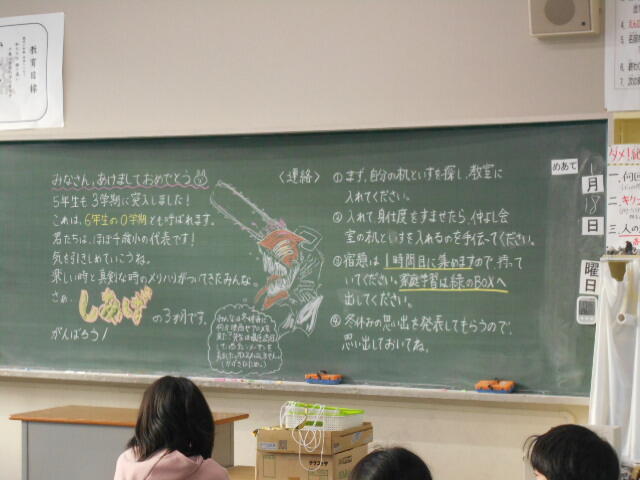 教育目標
みなさん、あけましておめでとう
5年生も3学期に突入しました!
これは、6年生の0学期とも呼ばれます。
君たちは、ほぼ千歳小の代表です!
気を引きしめていこうね。
楽しい時と真剣な時のメリハリがついてきたみんな。
さぁ
しあげ
の3ヶ月です。
がんばろう!
みんなは冬休みに
何か映画やアニメを
見た?
〈連絡〉
①まず、自分の机といすを探し、教室に
入れてください。
②入れて、身仕度をすませたら、仲よし会
室の机といすを入れるのを手伝ってください。
③宿題は1時間目に集めますので、待って
いてください。家庭学習は緑のBOXへ
出してください。
④冬休みの思い出を発表してもらうので、
思い出しておいてね。
めあて
1
月
18
日
曜
日
ダメ!絶
一、何回
二、キケ
三、人の